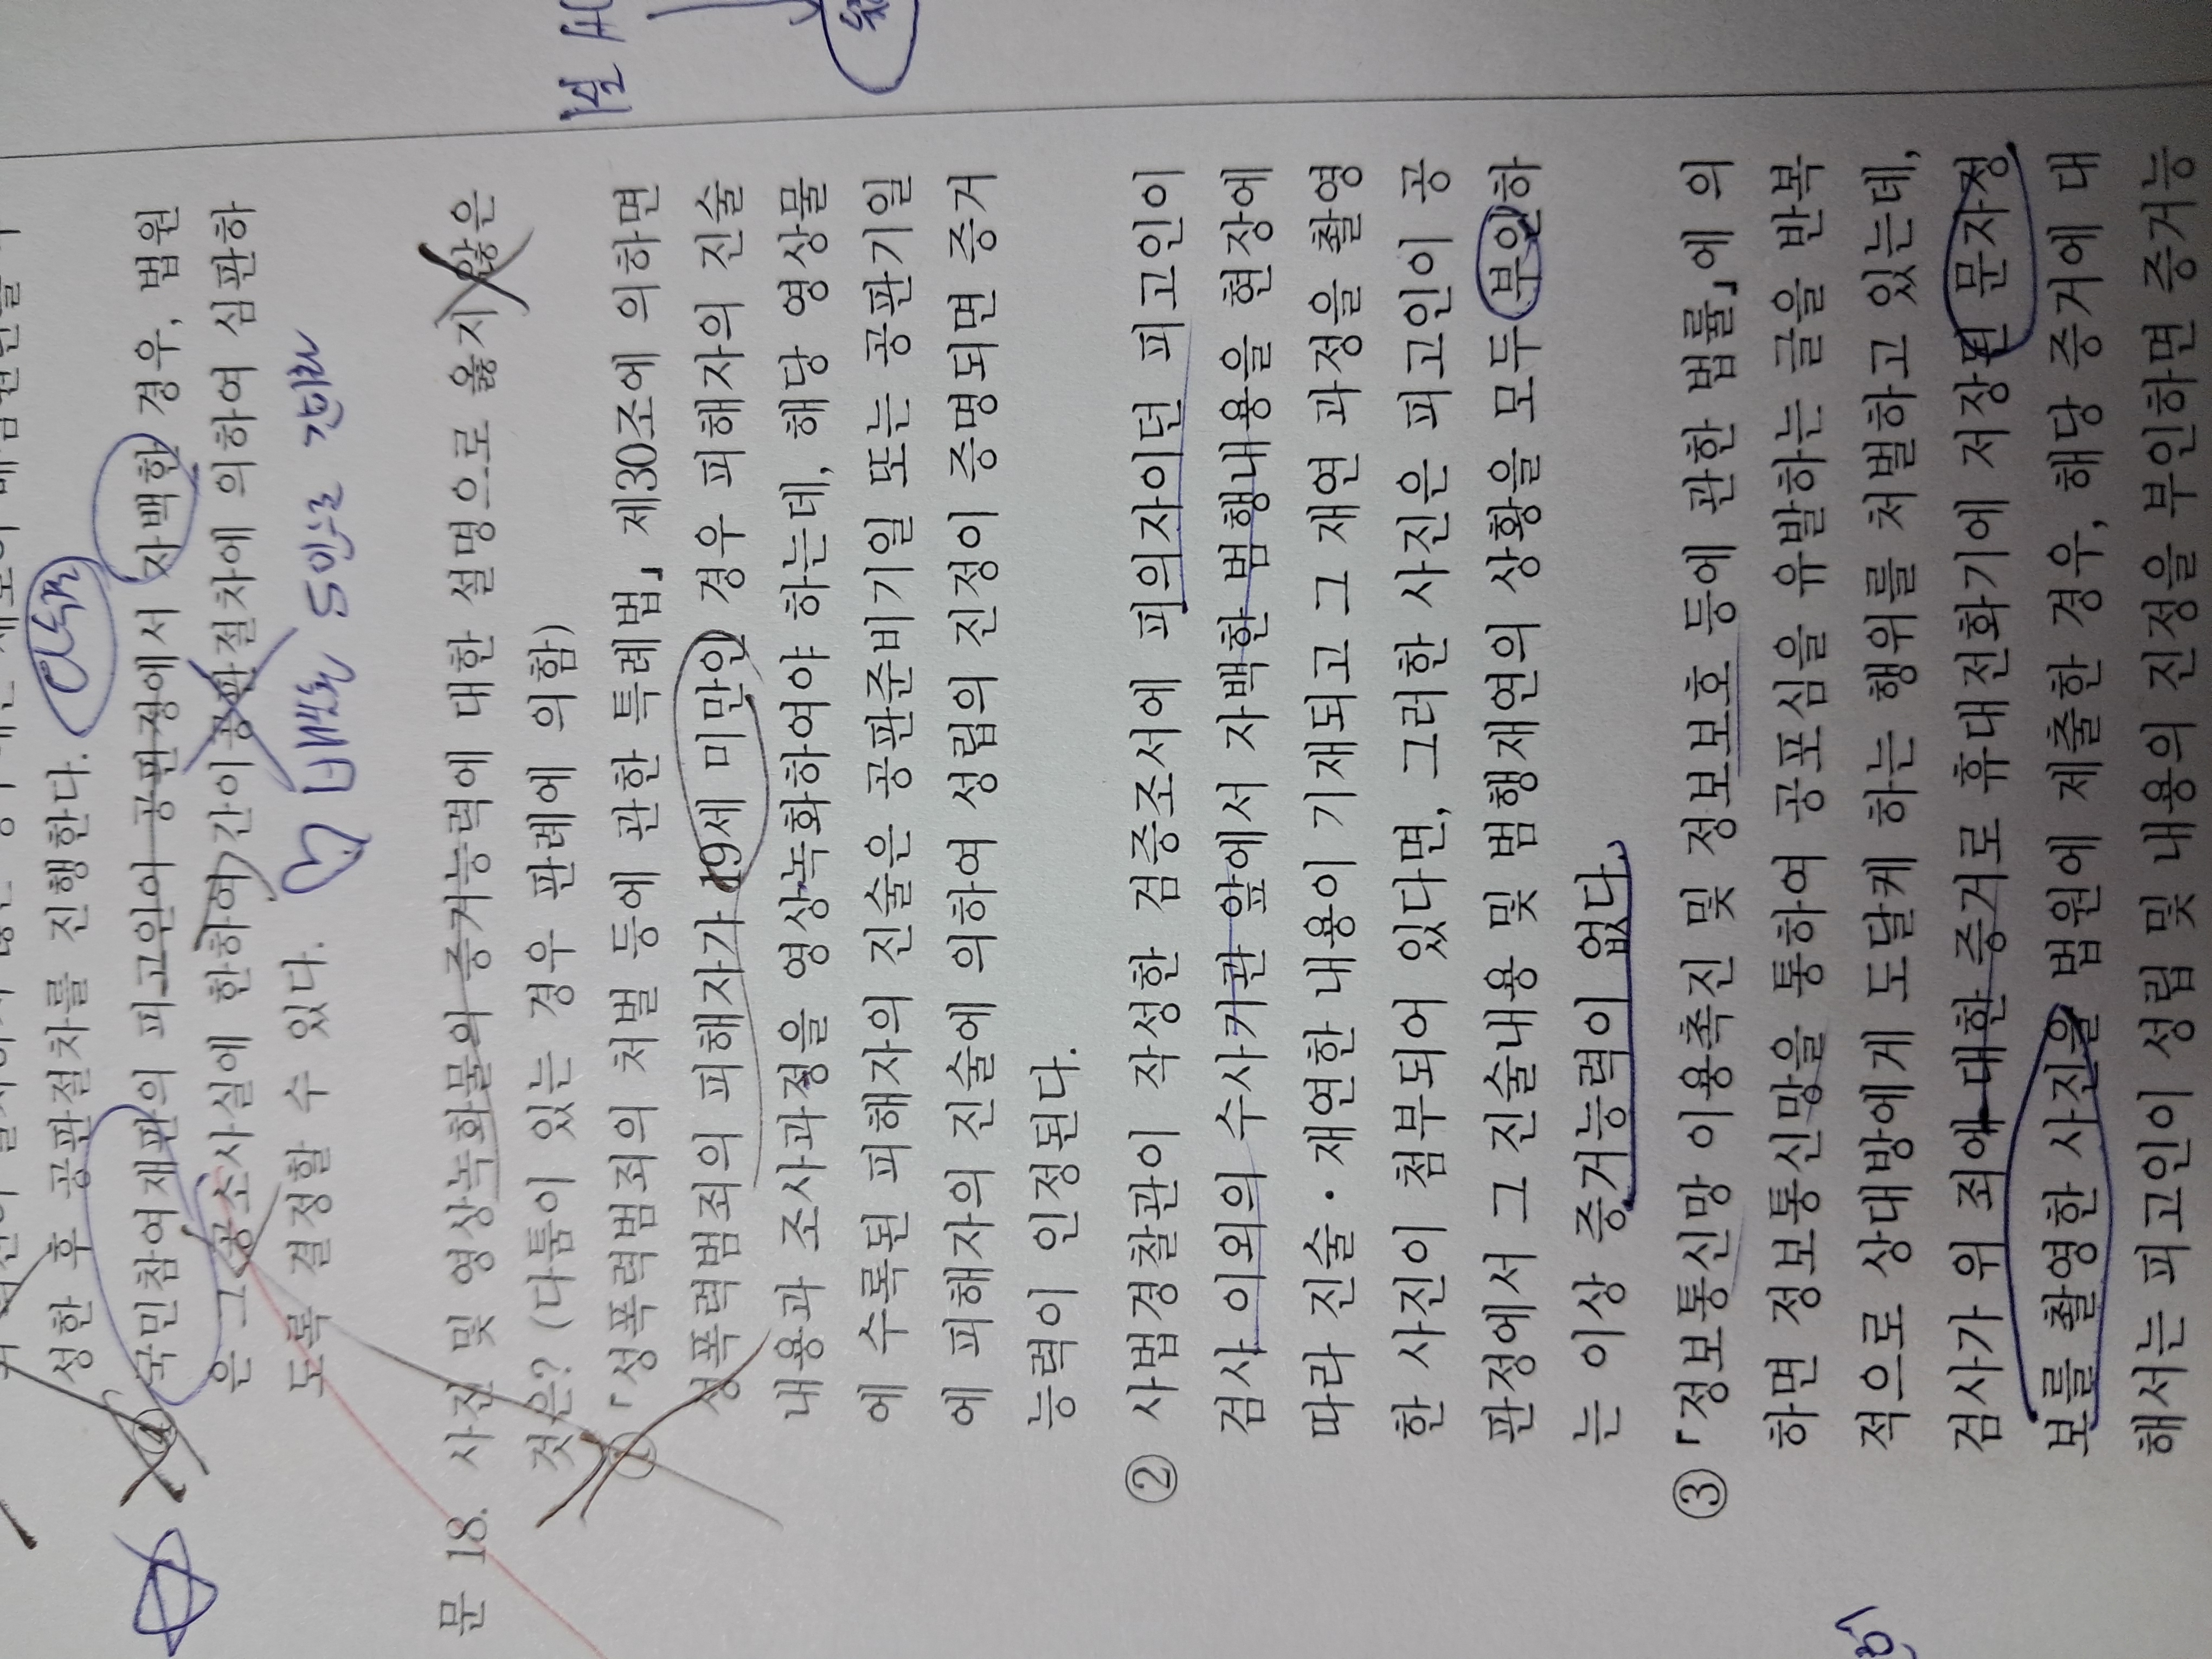 성한 후 공판절차를 진행한다.
④ 국민참여재판의 피고인이 공판정에서 자백한 경우, 법원
은 그 공소사실에 한하여 간이공판절차에 의하여 심판하
도록 결정할 수 있다.
문 18. 사진 및 영상녹화물의 증거능력에 대한 설명으로 옳지 않은
것은? (다툼이 있는 경우 판례에 의함)
① 「성폭력범죄의 처벌 등에 관한 특례법」 제30조에 의하면
성폭력범죄의 피해자가 19세 미만인 경우 피해자의 진술
내용과 조사과정을 영상녹화하여야 하는데, 해당 영상물
에 수록된 피해자의 진술은 공판준비기일 또는 공판기일
에 피해자의 진술에 의하여 성립의 진정이 증명되면 증거
능력이 인정된다.
② 사법경찰관이 작성한 검증조서에 피의자이던 피고인이
검사 이외의 수사기관 앞에서 자백한 범행내용을 현장에
따라 진술·재연한 내용이 기재되고 그 재연 과정을 촬영
한 사진이 첨부되어 있다면, 그러한 사진은 피고인이 공
판정에서 그 진술내용 및 범행재연의 상황을 모두 부인하
는 이상 증거능력이 없다.
③ 「정보통신망 이용촉진 및 정보보호 등에 관한 법률」에 의
하면 정보통신망을 통하여 공포심을 유발하는 글을 반복
적으로 상대방에게 도달케 하는 행위를 처벌하고 있는데,
검사가 위 죄에 대한 증거로 휴대전화기에 저장된 문자정
보를 촬영한 사진을 법원에 제출한 경우, 해당 증거에 대
해서는 피고인이 성립 및 내용의 진정을 부인하면 증거능